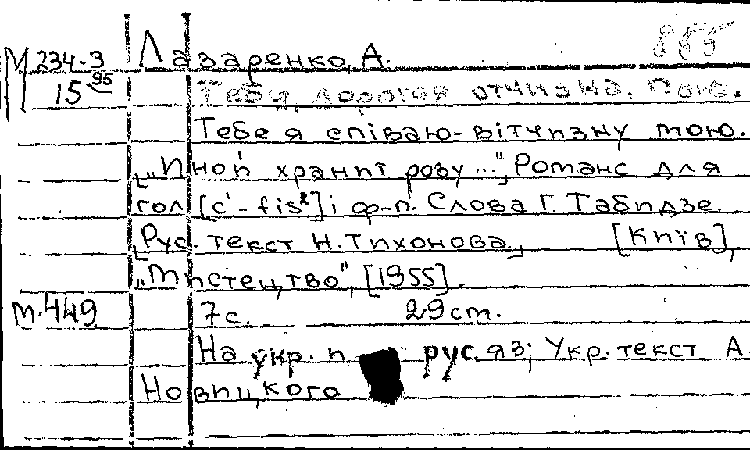 М 234-3 Лазаренко, А.
15 95 Тебя, дорогая отчизна, пою.
Тебе я співаю-вітчизну мою.
[„Иной хранит розу..."] Романс для
гол [c'-fis²] і ф-п. Слова Г. Табидзе
[Рус. текст Н. Тихонова.] [Київ],
„Мистецтво", [1955].
М.449 7с. 29см.
На укр. рус. яз; Укр. текст А
Новицкого